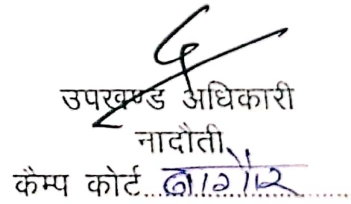 उपखण्ड अधिकारी
नादौती
कैम्प कोर्ट बागौर